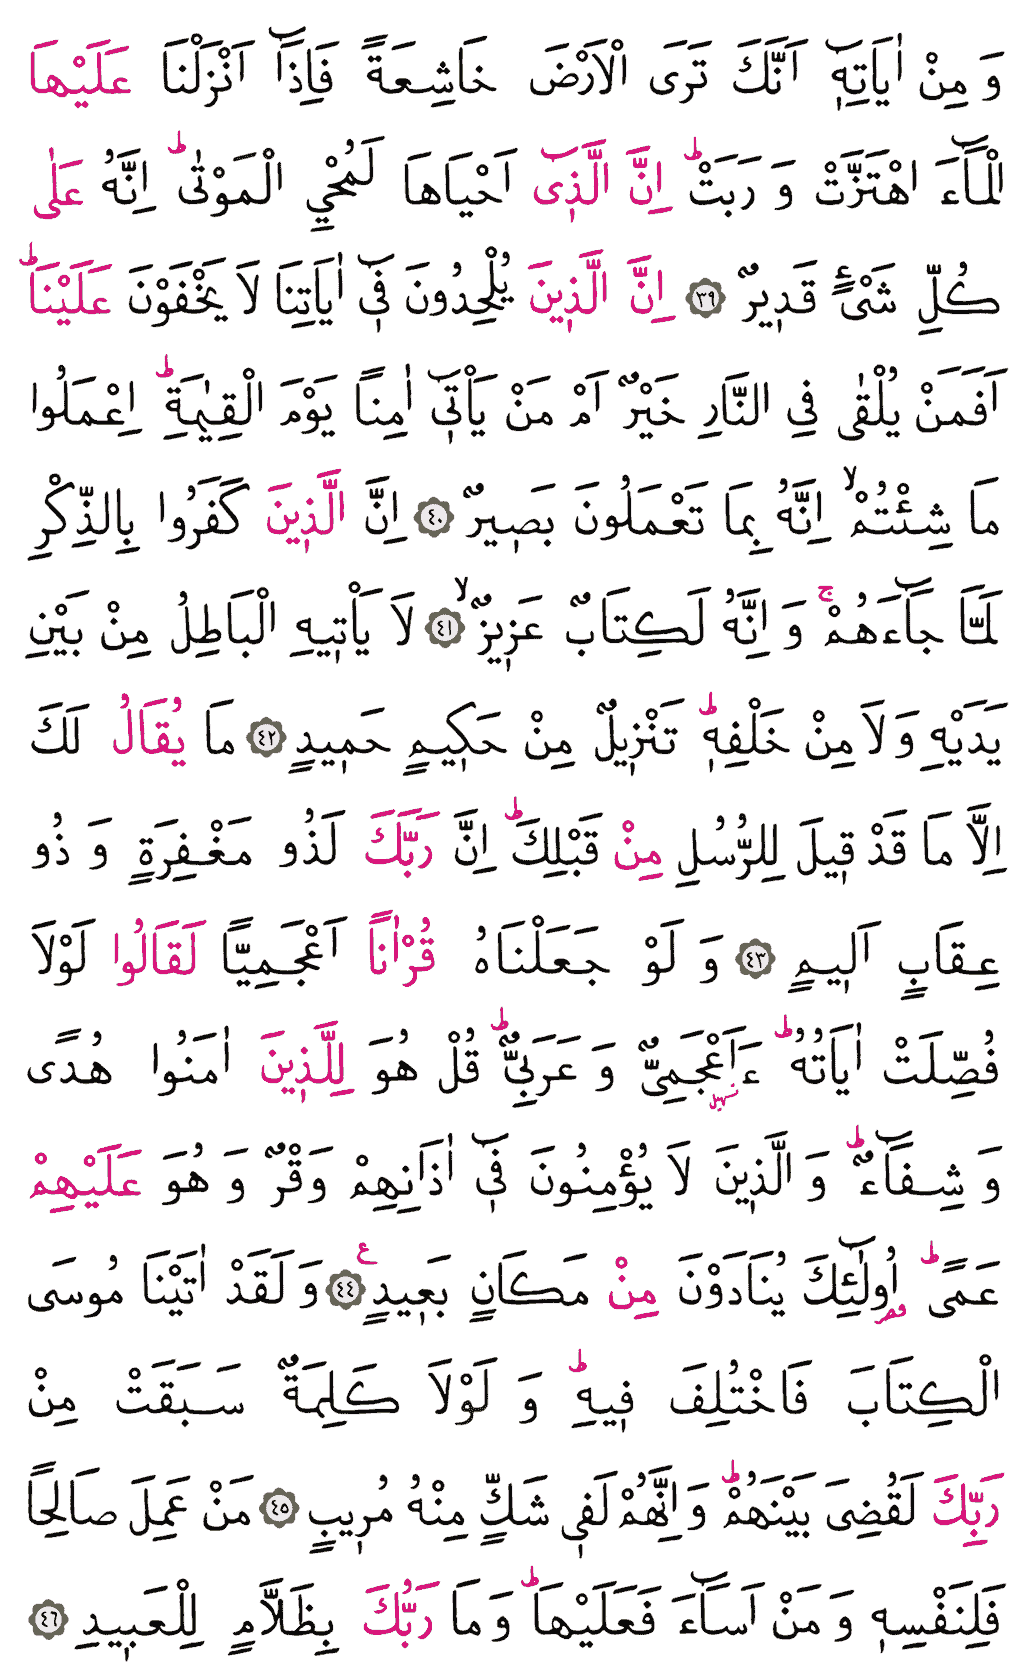 وَ مِنْ اٰيَاتِهٖٓ اَنَّكَ تَرَى الْاَرْضَ خَاشِعَةً فَاِذَٓا اَنْزَلْنَا عَلَيْهَا
الْمَٓاءَ اهْتَزَّتْ وَ رَبَتْۜ اِنَّ الَّذٖٓى اَحْيَاهَا لَمُحْيِ الْمَوْتٰىۜ اِنَّهُ عَلٰى
كُلِّ شَىْءٍ قَدٖيرٌ ﴿٣٩﴾ اِنَّ الَّذٖينَ يُلْحِدُونَ فٖٓى اٰيَاتِنَا لَا يَخْفَوْنَ عَلَيْنَاۜ
اَفَمَنْ يُلْقٰى فِى النَّارِ خَيْرٌ اَمْ مَنْ يَاْتٖٓى اٰمِنًا يَوْمَ الْقِيٰمَةِۜ اِعْمَلُوا
مَا شِئْتُمْۙ اِنَّهُ بِمَا تَعْمَلُونَ بَصٖيرٌ ﴿٤٠﴾ اِنَّ الَّذٖينَ كَفَرُوا بِالذِّكْرِ
لَمَّا جَٓاءَهُمْۚ وَ اِنَّهُ لَكِتَابٌ عَزٖيزٌۙ ﴿٤١﴾ لَا يَاْتٖيهِ الْبَاطِلُ مِنْ بَيْنِ
يَدَيْهِ وَلَا مِنْ خَلْفِهٖۜ تَنْزٖيلٌ مِنْ حَكٖيمٍ حَمٖيدٍ ﴿٤٢﴾ مَا يُقَالُ لَكَ
اِلَّا مَا قَدْ قٖيلَ لِلرُّسُلِ مِنْ قَبْلِكَۜ اِنَّ رَبَّكَ لَذُو مَغْفِرَةٍ وَ ذُو
عِقَابٍ اَلٖيمٍ ﴿٤٣﴾ وَ لَوْ جَعَلْنَاهُ قُرْاٰنًا اَعْجَمِيًّا لَقَالُوا لَوْلَا
فُصِّلَتْ اٰيَاتُهُۜ ءَاَعْجَمِىٌّ وَ عَرَبِىٌّۜ قُلْ هُوَ لِلَّذٖينَ اٰمَنُوا هُدًى
تسهيل
وَ شِفَٓاءٌۜ وَ الَّذٖينَ لَا يُؤْمِنُونَ فٖٓى اٰذَانِهِمْ وَقْرٌ وَ هُوَ عَلَيْهِمْ
عَمًىۜ اُولٰٓئِكَ يُنَادَوْنَ مِنْ مَكَانٍ بَعٖيدٍ ﴿٤٤﴾ ع وَ لَقَدْ اٰتَيْنَا مُوسَى
قصر
الْكِتَابَ فَاخْتُلِفَ فٖيهِۜ وَ لَوْلَا كَلِمَةٌ سَبَقَتْ مِنْ
رَبِّكَ لَقُضِىَ بَيْنَهُمْۜ وَ اِنَّهُمْ لَفٖى شَكٍّ مِنْهُ مُرٖيبٍ ﴿٤٥﴾ مَنْ عَمِلَ صَالِحًا
فَلِنَفْسِهٖ وَ مَنْ اَسَٓاءَ فَعَلَيْهَاۜ وَ مَا رَبُّكَ بِظَلَّامٍ لِلْعَبٖيدِ ﴿٤٦﴾